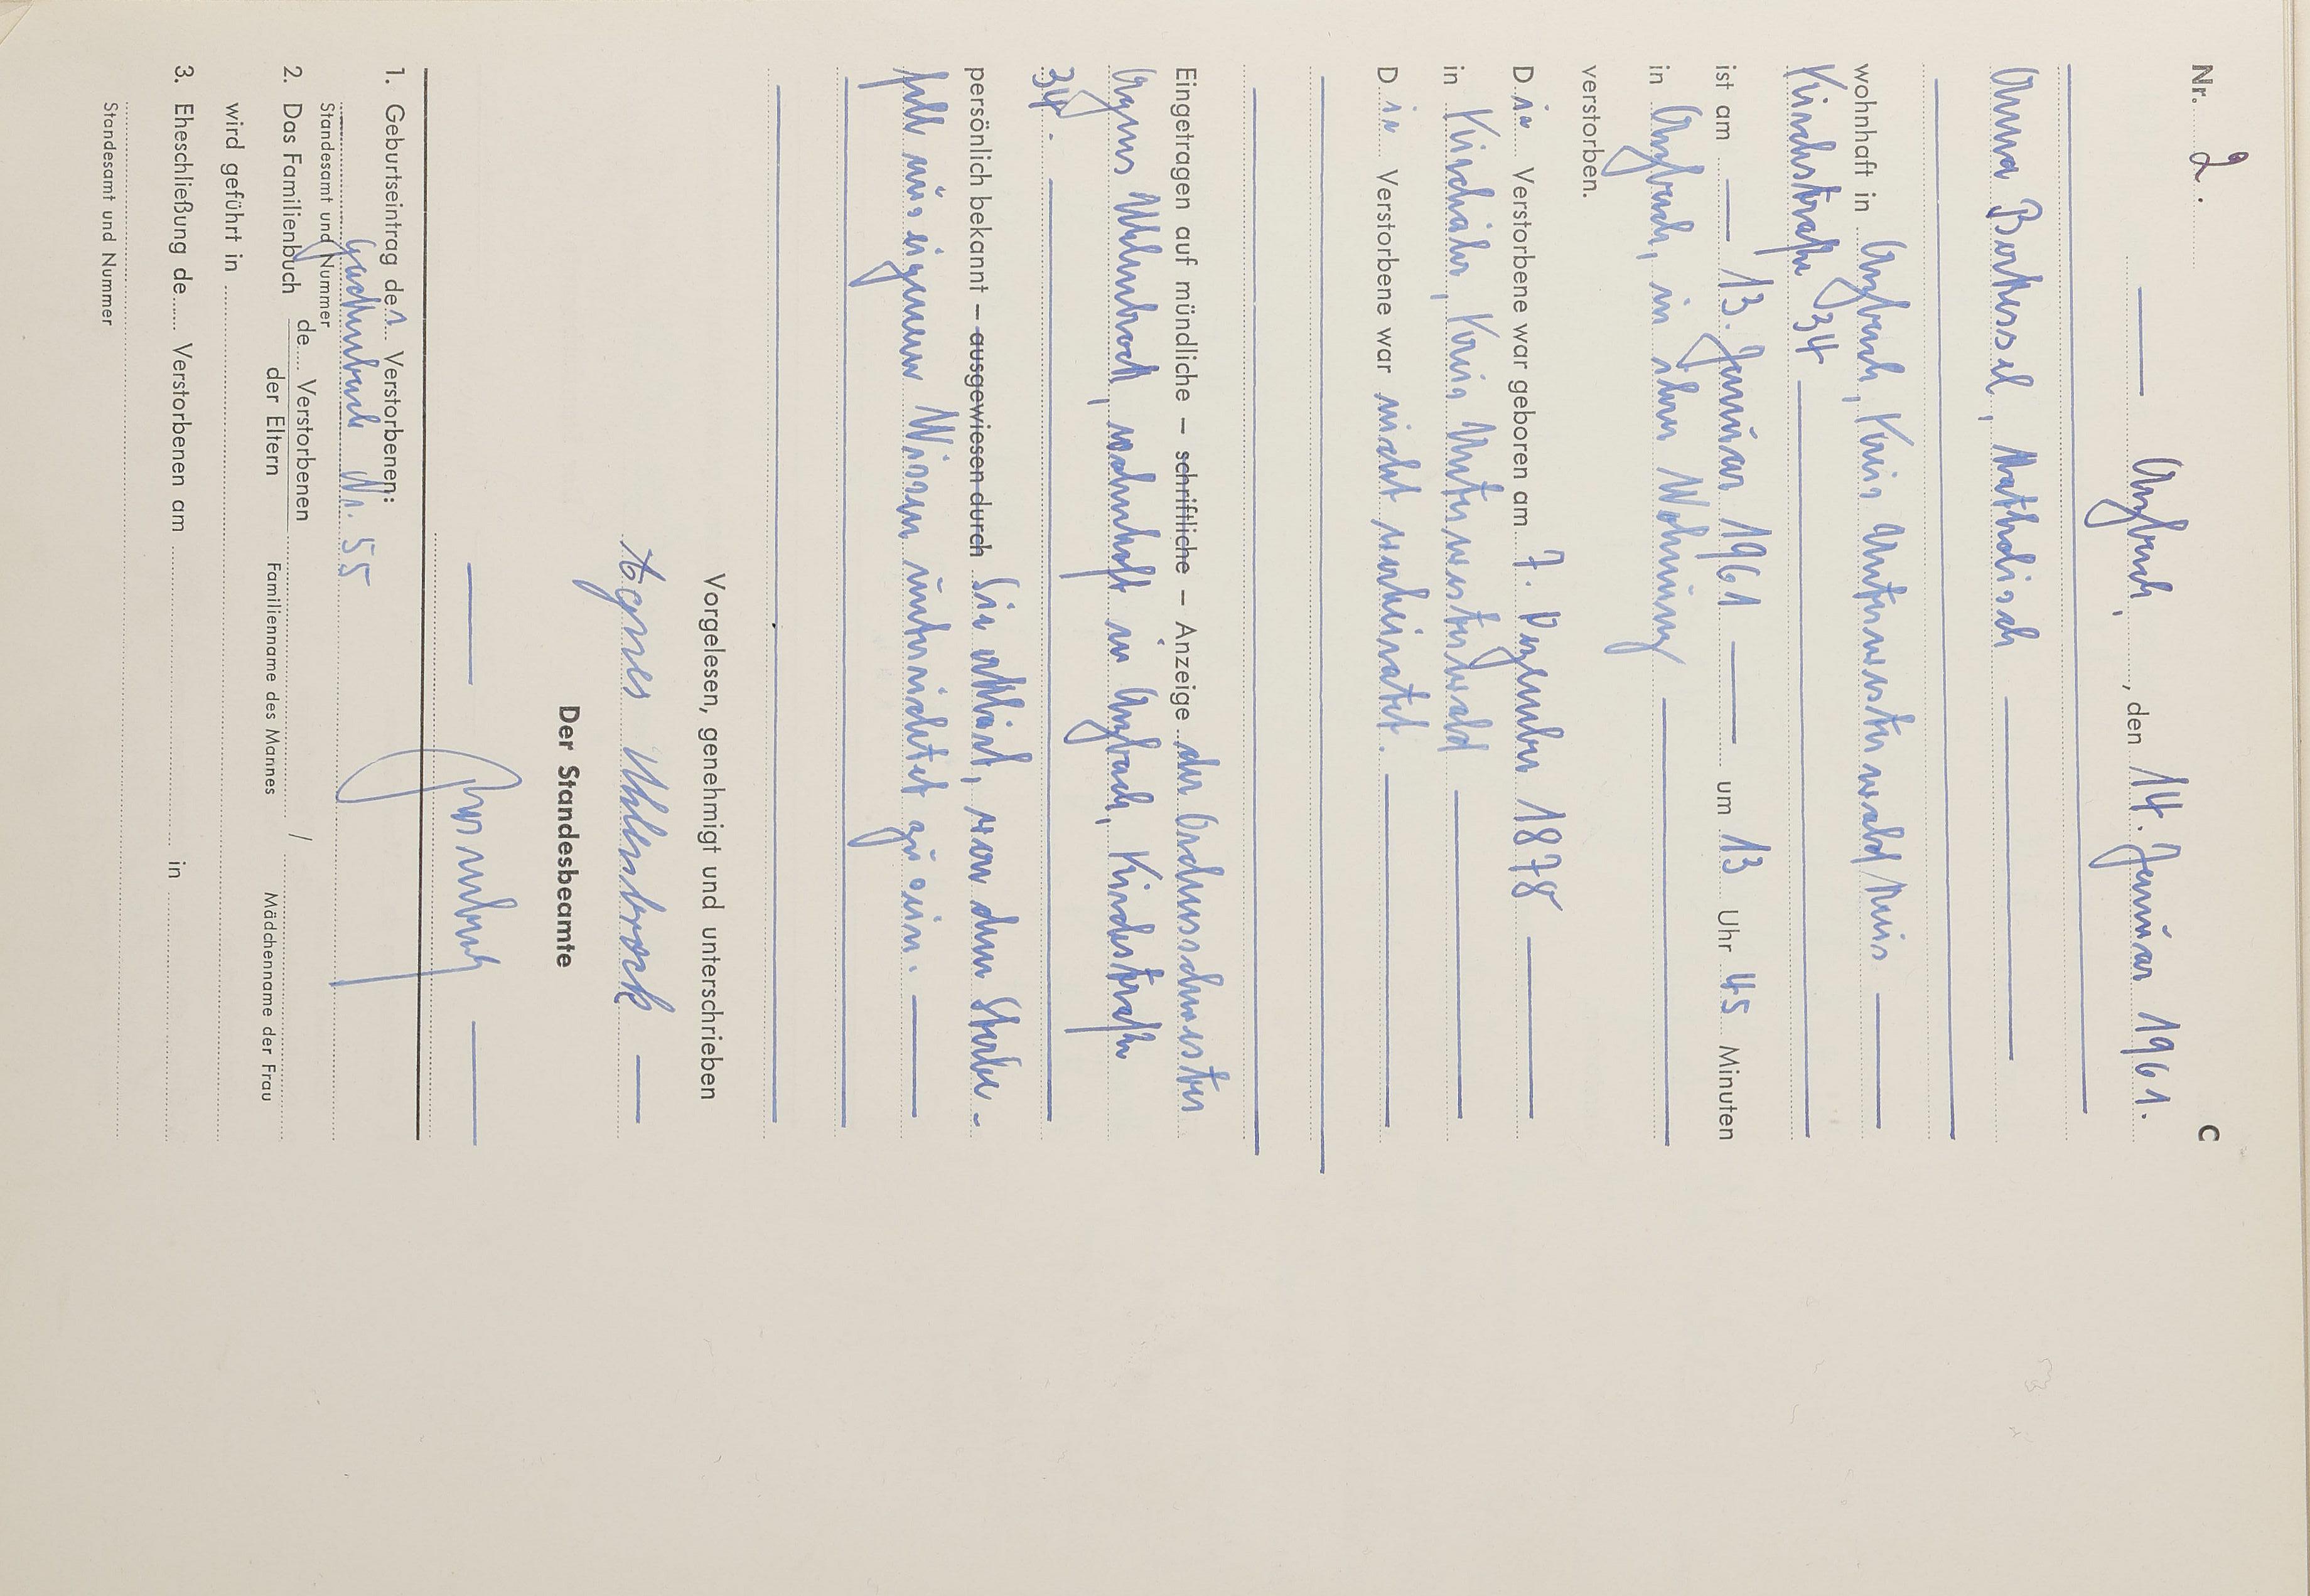 Nr. 2. C
Arzbach, den 14. Januar 1961.
Anna Borkussel, katholisch
wohnhaft in Arzbach, Kreis Unterwesterwald,
Kirchstraße 34
ist am 13. Januar 1961 um 13 Uhr 45 Minuten
in Arzbach, in ihrer Wohnung
verstorben.
Die Verstorbene war geboren am 7. Dezember 1878
in Kirchähr, Kreis Unterwesterwald
Die Verstorbene war nicht verheiratet.
Eingetragen auf mündliche – schriftliche – Anzeige der Ordensschwester
Agnes Uhlenbrock, wohnhaft in Arzbach, Kirchstraße
34.
persönlich bekannt – ausgewiesen durch Sie erklärt, von dem Sterbe-
fall aus eigenem Wissen unterrichtet zu sein.
Vorgelesen, genehmigt und unterschrieben
Agnes Uhlenbrock
Der Standesbeamte
1. Geburtseintrag der Verstorbenen:
Standesamt und Nummer Gackenbach Nr. 55
2. Das Familienbuch de Verstorbenen / der Eltern
Familienname des Mannes / Mädchenname der Frau
wird geführt in
3. Eheschließung de Verstorbenen am in
Standesamt und Nummer